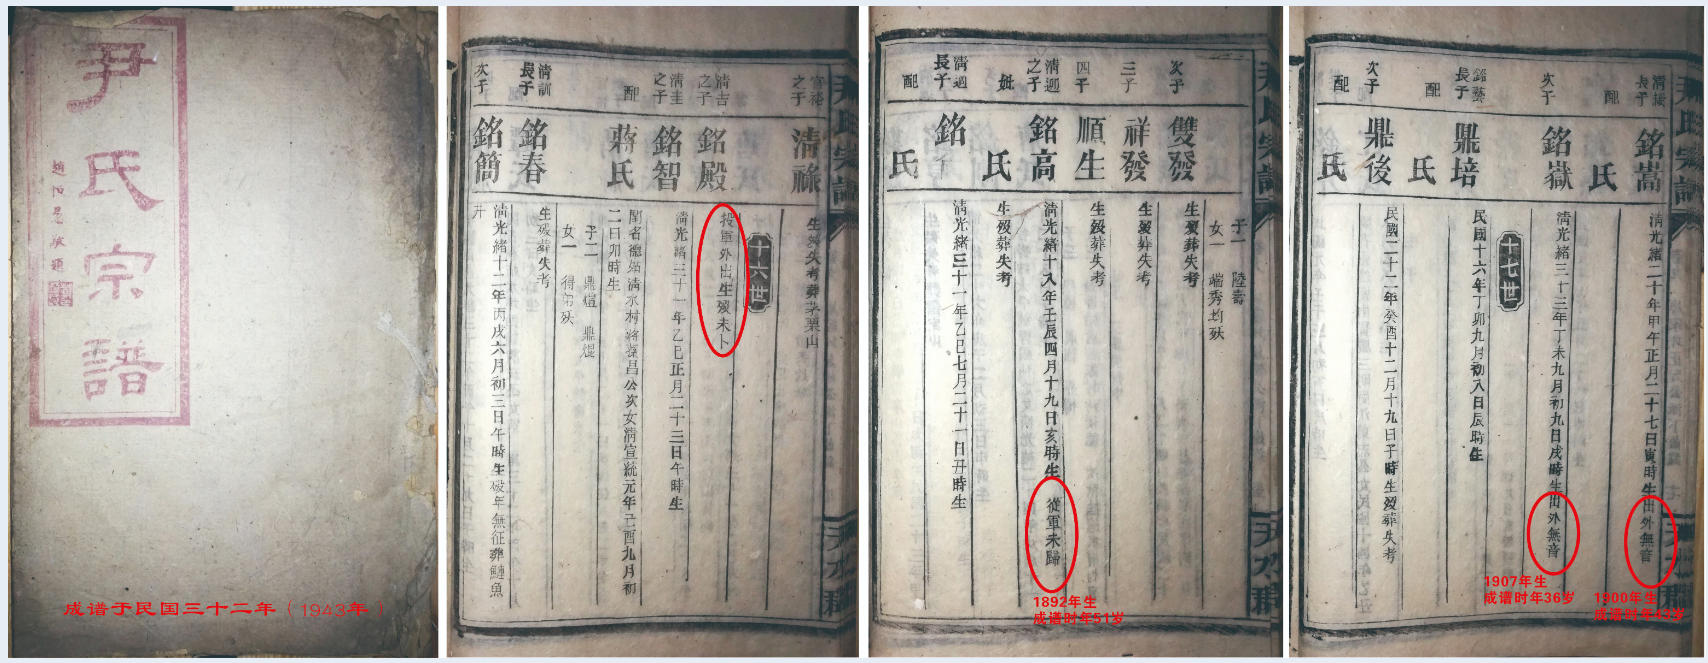 尹氏宗譜
成谱于民国三十二年（1943年）
尹氏宗譜
官裕之子
清祿
生歿失考葬茅栗山
十六世
清吉之子
銘殿
投軍外出生歿未卜
清圭之子
銘智
清光緒三十一年乙巳正月二十三日午時生
配
蔣氏
二日卯時生
子二 鼎煊 鼎焜
女一
清訓長子
銘春
生歿葬失考
次子
銘簡
清光緒十二年丙戌六月初三日午時生歿年無征葬鰱魚
尹氏宗譜
子一 陸壽
女一 端秀均殀
次子
雙發
生歿葬失考
三子
祥發
生歿葬失考
四子
順生
生歿葬失考
清迥之子
銘高
清光緒十八年壬辰四月十九日亥時生 從軍未歸
妣
氏
生歿葬失考
清迥長子
銘
清光緒三十一年乙巳七月二十一日丑時生
配
氏
1892年生
成谱时年51岁
尹氏宗譜
長子
銘嵩
清光緒二十年甲午正月二十七日寅時生出外無音
配
氏
次子
銘嶽
清光緒三十三年丁未九月初九日戌時生出外無音
十七世
銘藝長子
鼎培
民國十六年丁卯九月初八日辰時生
配
氏
次子
鼎後
民國二十二年癸酉十二月十九日子時生歿葬失考
配
氏
1907年生
成谱时年36岁
1900年生
成谱时年43岁